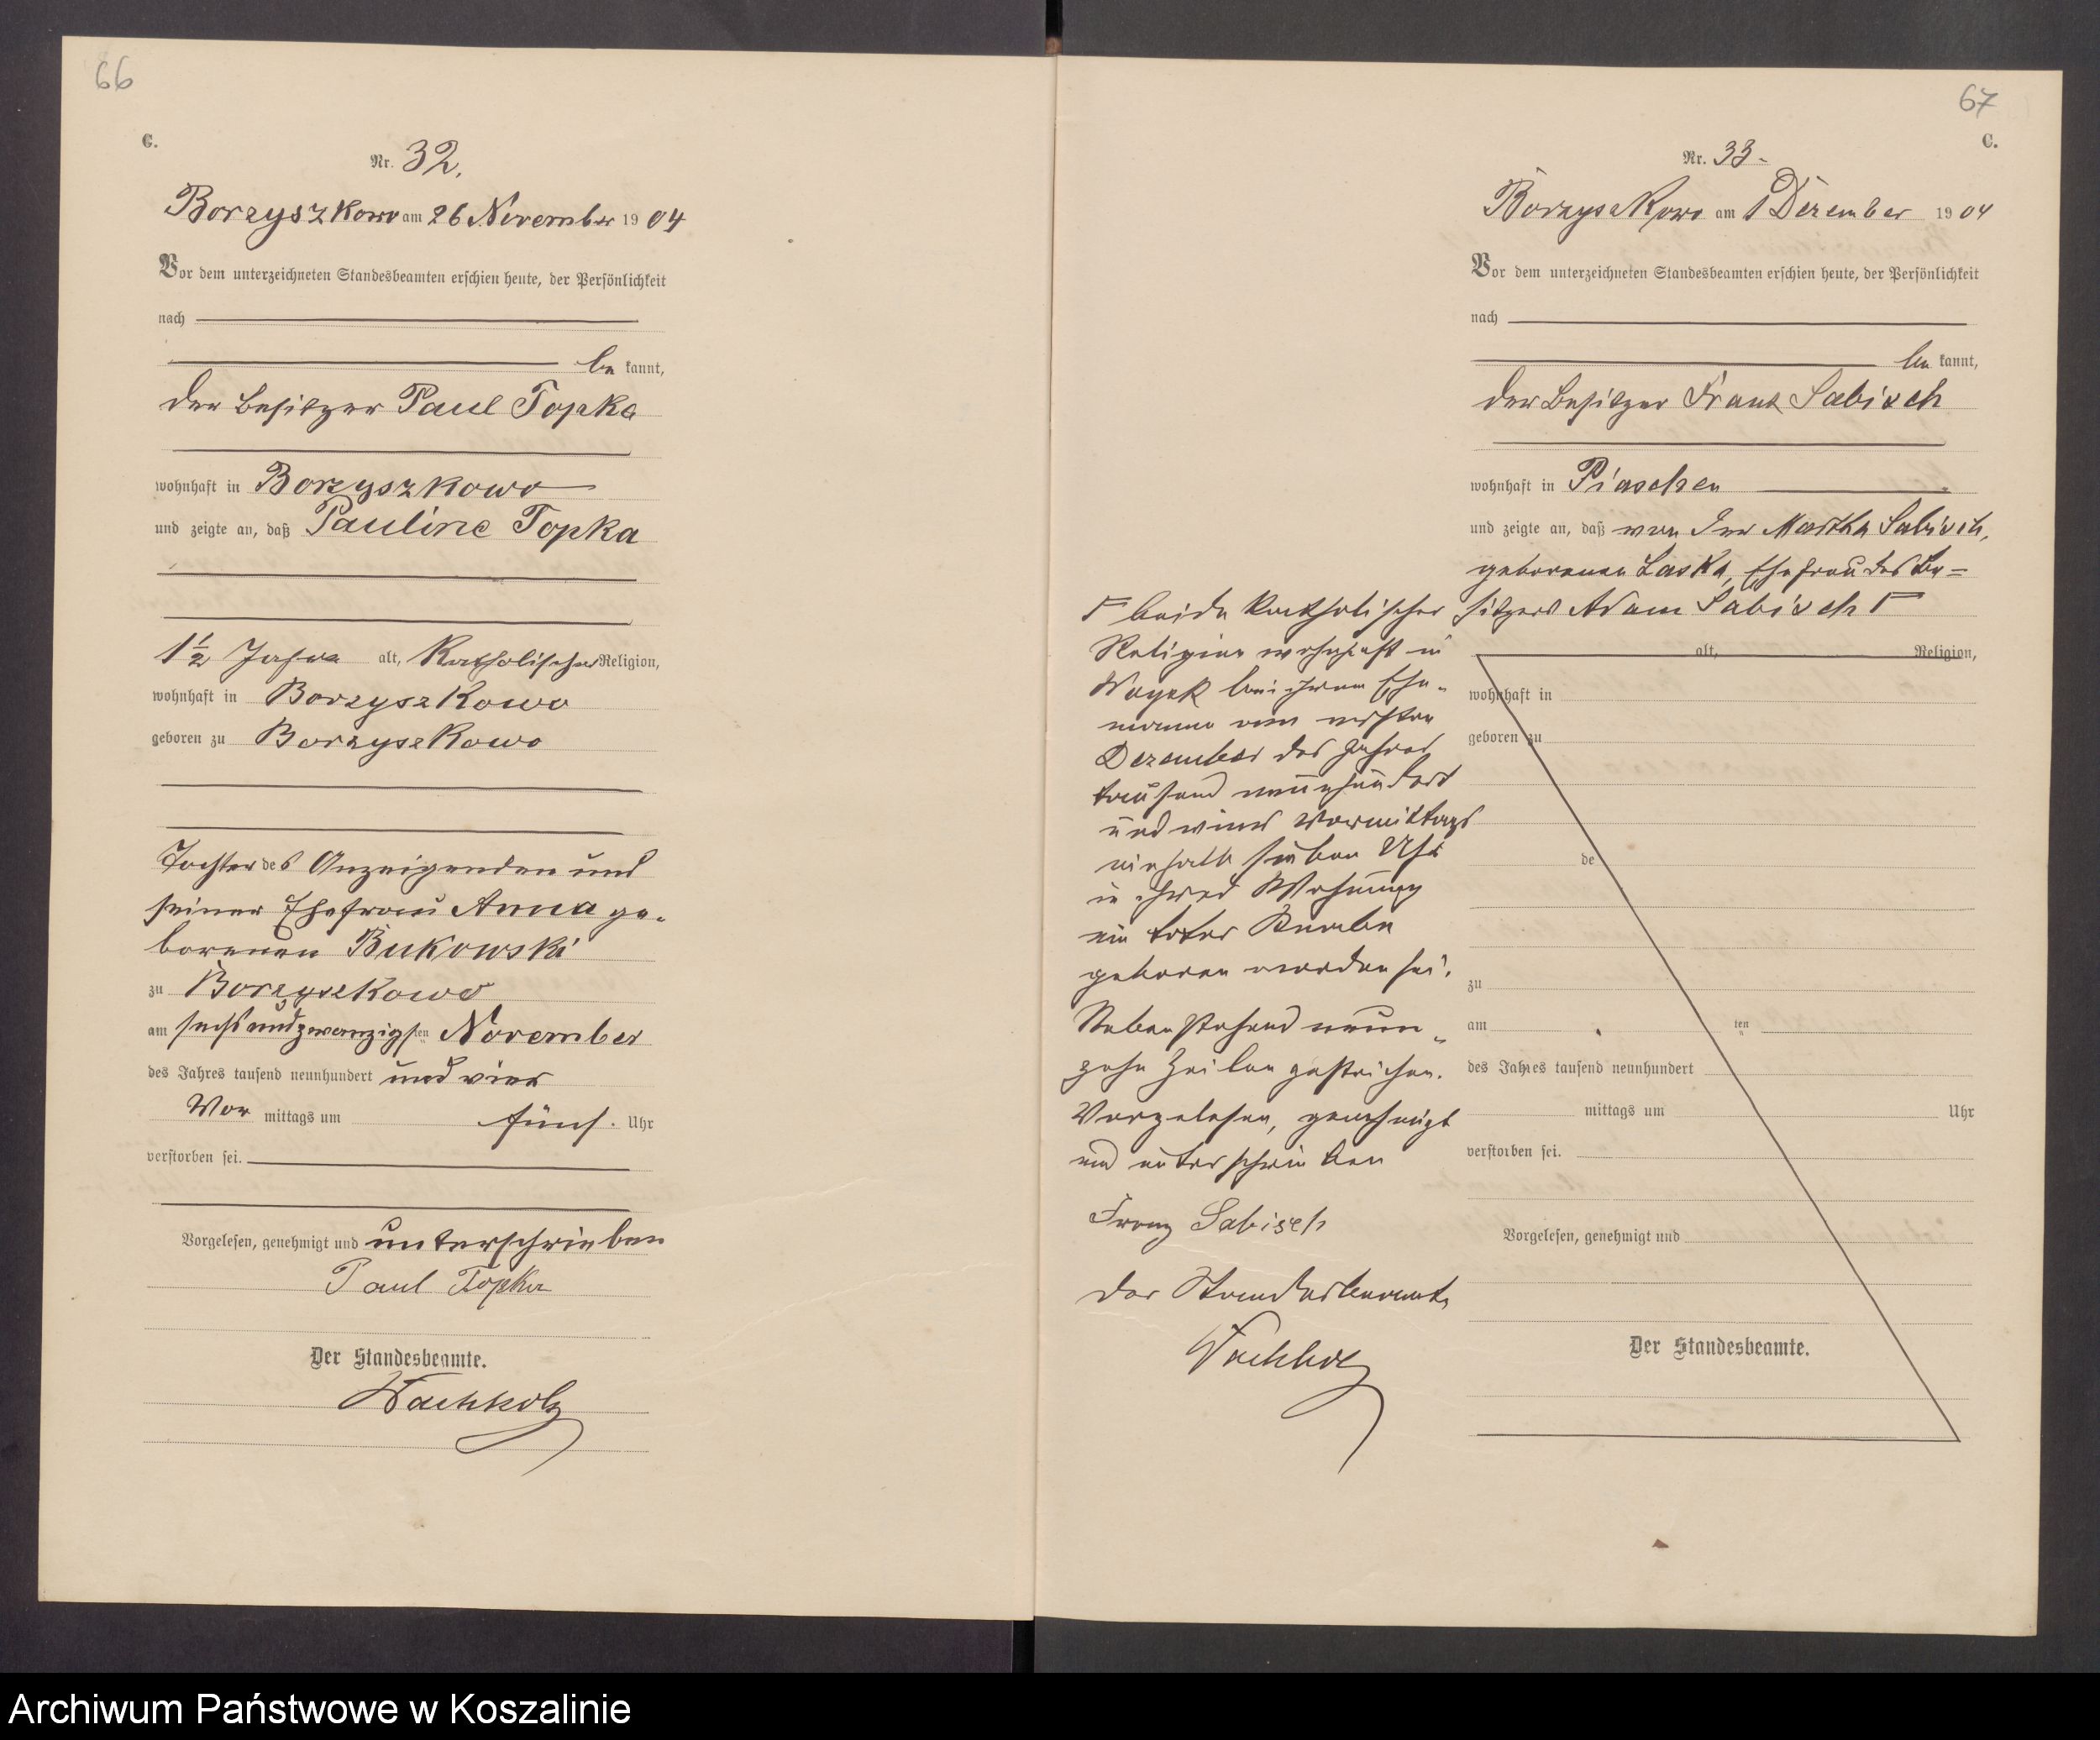 66
C.
Nr. 32.
Borzyszkowo am 26 November 1904
Vor dem unterzeichneten Standesbeamten erschien heute, der Persönlichkeit
nach
be kannt,
der Besitzer Paul Topka
wohnhaft in Borzyszkowo
und zeigte an, daß Pauline Topka
1½ Jahre alt, Katholischer Religion,
wohnhaft in Borzyszkowo
geboren zu Borzyszkowo
Tochter des Anzeigenden und
seiner Ehefrau Anna ge-
borenen Bukowski
zu Borzyszkowo
am sechsundzwanzigsten November
des Jahres tausend neunhundert und vier
Vor mittags um fünf Uhr
verstorben sei.
Vorgelesen, genehmigt und unterschrieben
Paul Topka
Der Standesbeamte.
Wachholz
67
C.
Nr. 33.
Borzyszkowo am 1 Dezember 1904
Vor dem unterzeichneten Standesbeamten erschien heute, der Persönlichkeit
nach
be kannt,
der Besitzer Franz Sabisch
wohnhaft in Piaschen
und zeigte an, daß von der Martha Sabisch,
geborenen Laska, Ehefrau des Be=
sitzers Adam Sabisch
beide katholischer
Religion wohnhaft in
bei ihrem Ehe-
manne am ersten
Dezember des Jahres
tausend neunhundert
und vier Vormittags
einhalb sieben Uhr
in ihrer Wohnung
ein toter Knabe
geboren worden sei.
Nebenstehend neun-
zehn Zeilen gestrichen.
Vorgelesen, genehmigt
und unterschrieben
Franz Sabisch
Der Standesbeamte
Wachholz
alt, Religion,
wohnhaft in
geboren zu
de
zu
am ten
des Jahres tausend neunhundert
mittags um Uhr
verstorben sei.
Vorgelesen, genehmigt und
Der Standesbeamte.
Archiwum Państwowe w Koszalinie